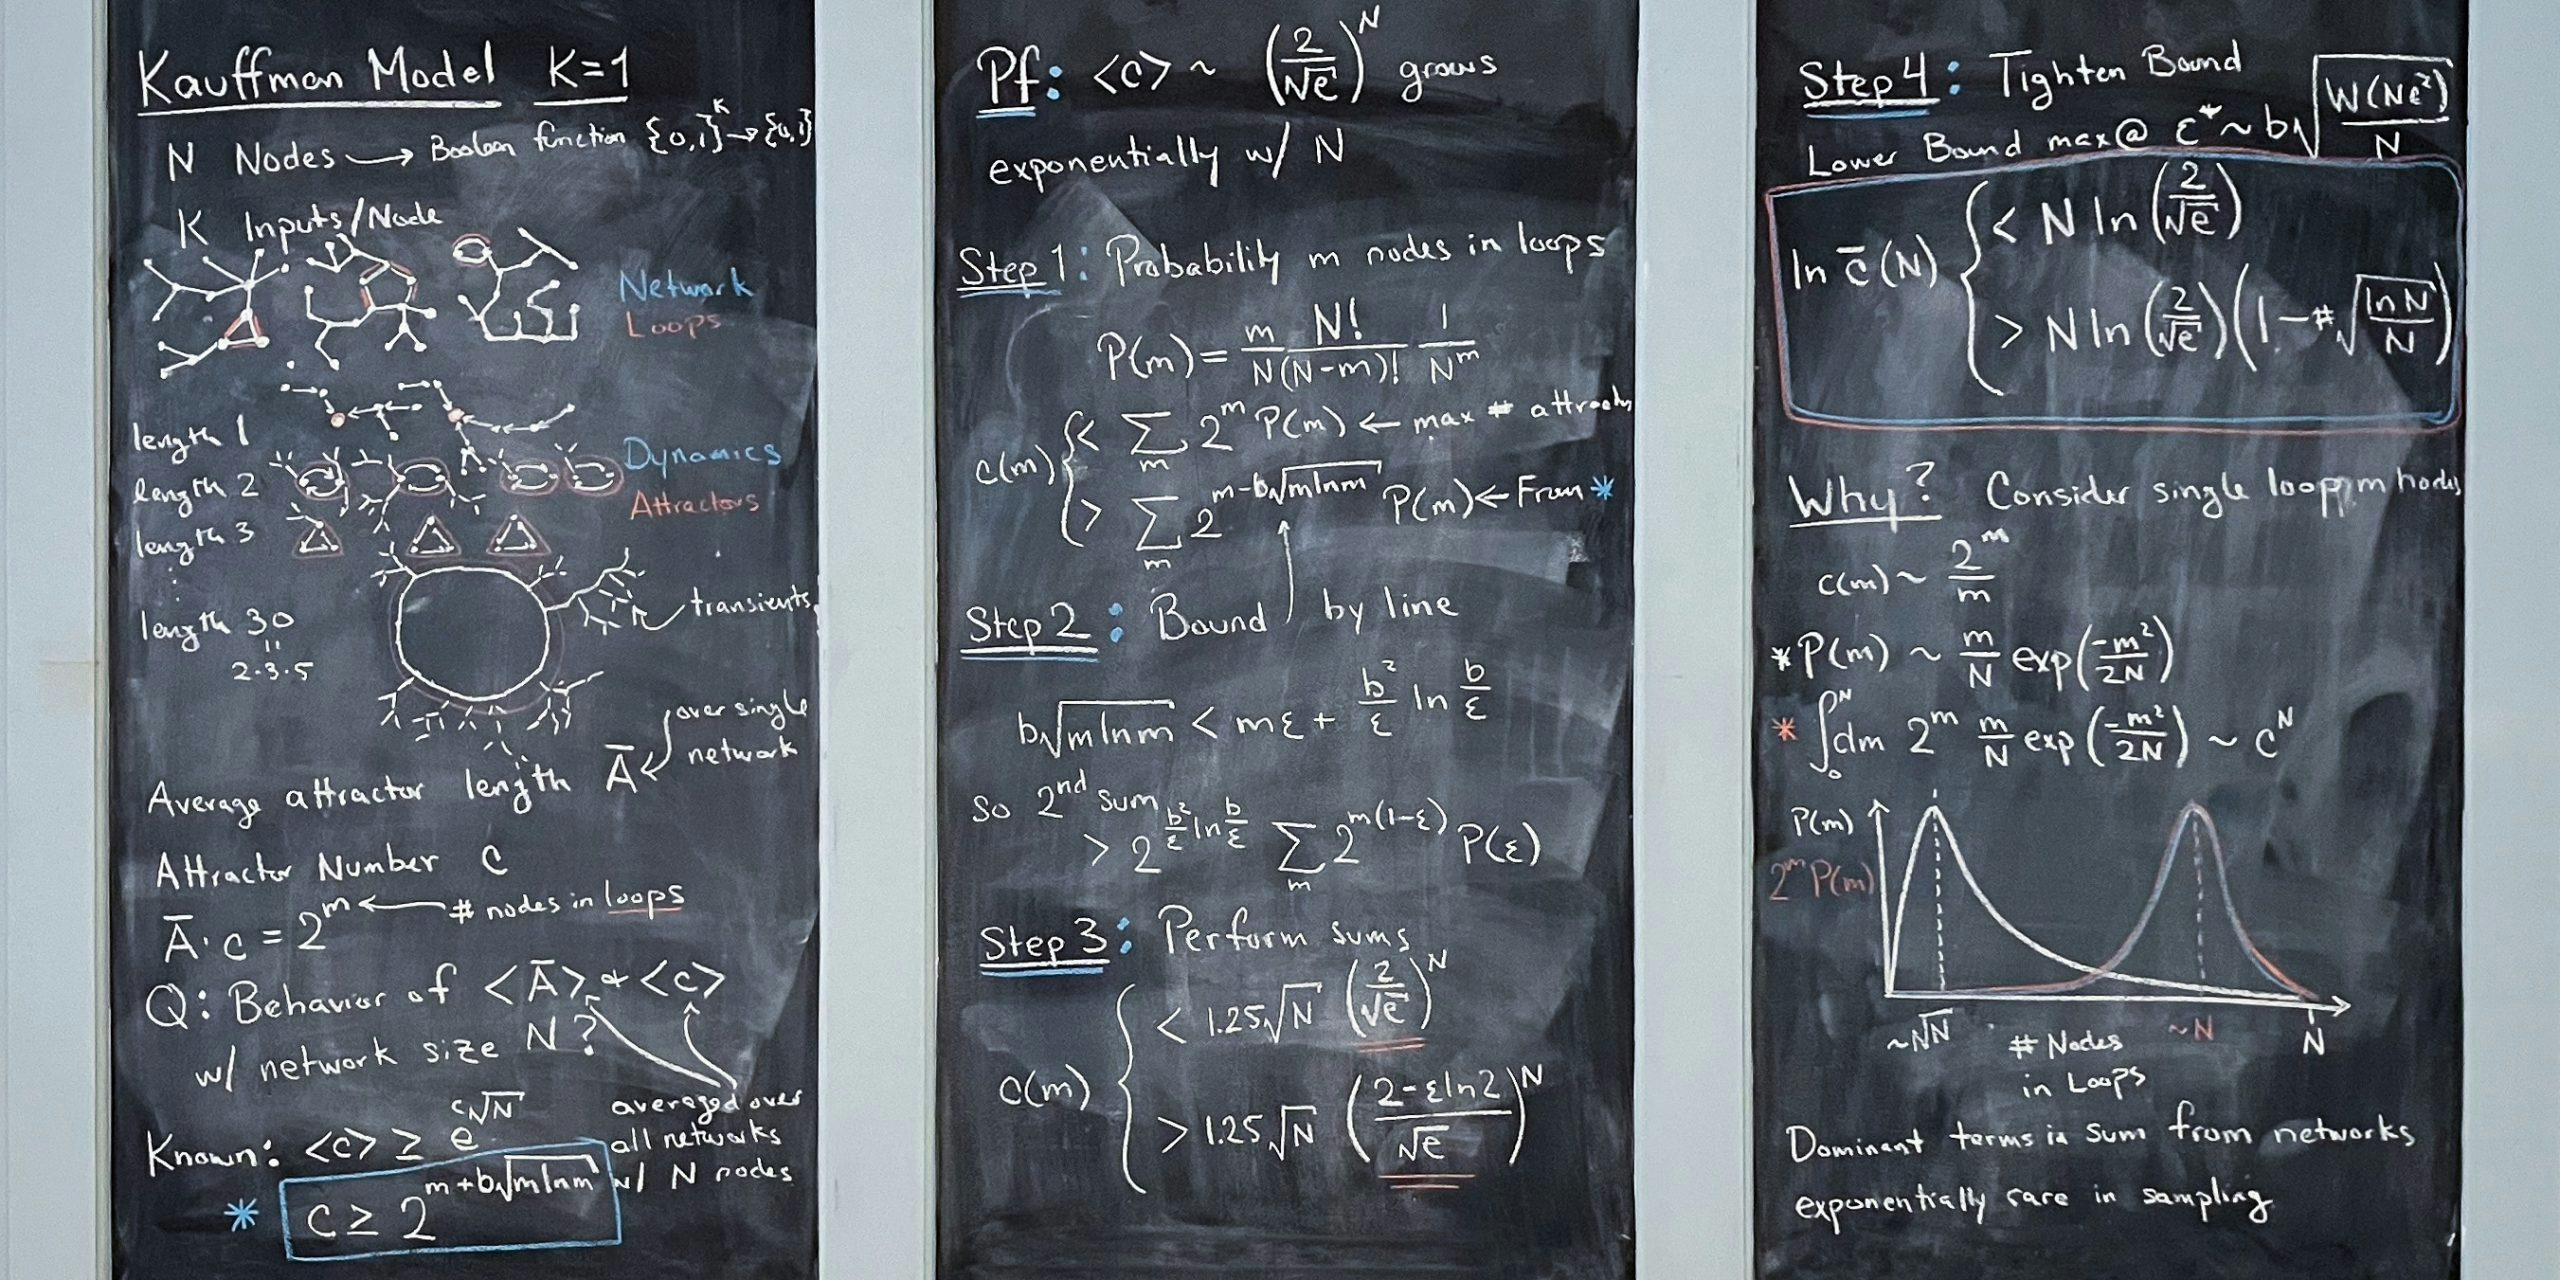 Kauffman Model K=1
N Nodes → Boolean function {0,1}^K → {0,1}
K Inputs/Node
Network
Loops
length 1
length 2
length 3
Dynamics
Attractors
length 30
2·3·5
transients
Average attractor length Ā ← over single network
Attractor Number C
Ā·c = 2^m ← # nodes in loops
Q: Behavior of <Ā> & <c>
w/ network size N?
averaged over
all networks
w/ N nodes
Known: <c> ≥ e^{c√N}
* C ≥ 2^{m+b√(m ln m)}
Pf: <c> ~ (2/√e)^N grows
exponentially w/ N
Step 1: Probability m nodes in loops
P(m) = m/N N!/(N-m)! 1/N^m
c(m) { < Σ_m 2^m P(m) ← max # attractors
> Σ_m 2^{m-b√(m ln m)} P(m) ← From *
Step 2: Bound ↑ by line
b√(m ln m) < mε + b²/ε ln b/ε
So 2nd sum
> 2^{b²/ε ln b/ε} Σ_m 2^{m(1-ε)} P(ε)
Step 3: Perform sums
c(m) { < 1.25√N (2/√e)^N
> 1.25√N ((2-ε ln 2)/√e)^N
Step 4: Tighten Bound
Lower Bound max @ ε* ~ b√(W(Ne²)/N)
ln c̄(N) { < N ln (2/√e)
> N ln (2/√e) (1 - #√(ln N/N))
Why? Consider single loop, m nodes
c(m) ~ 2^m/m
* P(m) ~ m/N exp(-m²/2N)
* ∫_0^N dm 2^m m/N exp(-m²/2N) ~ c^N
P(m)
2^m P(m)
~√N
# Nodes
in Loops
~N
N
Dominant terms in sum from networks
exponentially rare in sampling